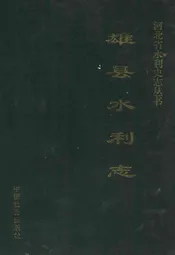 河北省水利史志丛书
雄县水利志